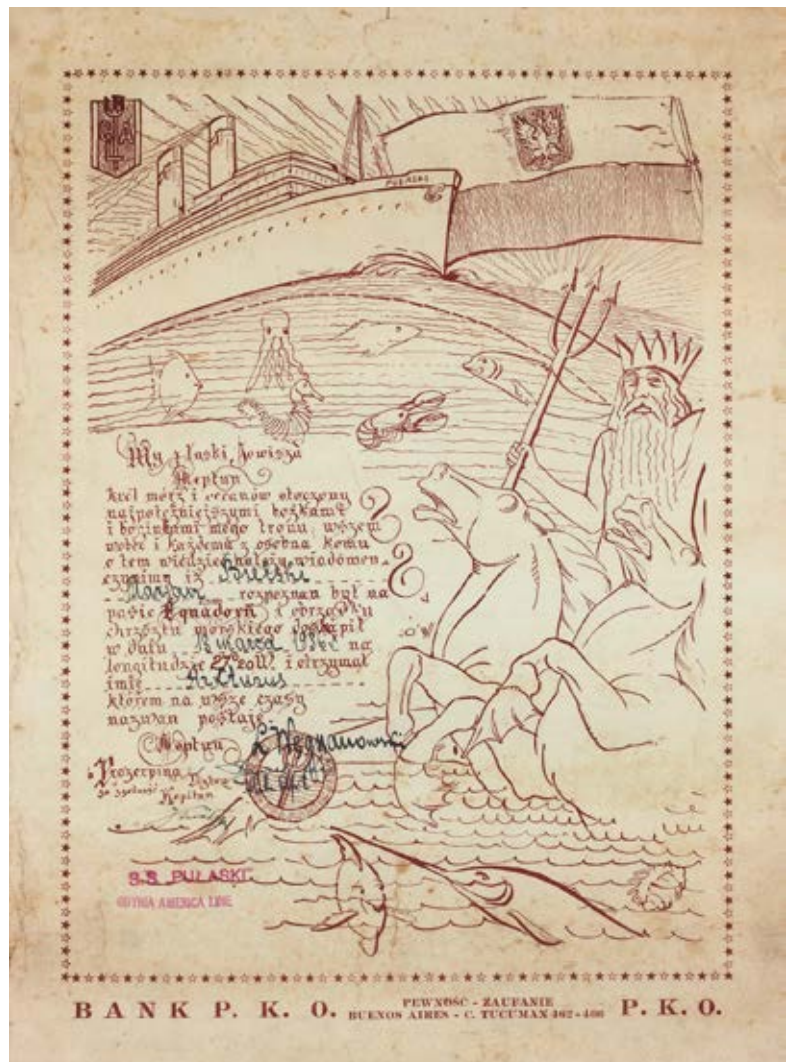 PUŁASKI
My z łaski Jowisza
Neptun
król mórz i oceanów otoczony
najpotężniejszymi bożkami
i boginkami mego tronu, wszem
wobec i każdemu z osobna komu
o tem wiedzieć należy wiadomem
czynimy iż
Marjan rozpoznan był na
pasie Equadoru i obrządku
chrztu morskiego dostąpił
w dniu 18 marca na
longitudzie i otrzymał
imię Arkturus
którem na wsze czasy
nazwan postaje
Neptun
Prozerpina
Za zgodność Kapitan
S.S. PUŁASKI
GDYNIA AMERICA LINE
BANK P. K. O. PEWNOŚĆ - ZAUFANIE P. K. O.
BUENOS AIRES - C. TUCUMAN 462-466